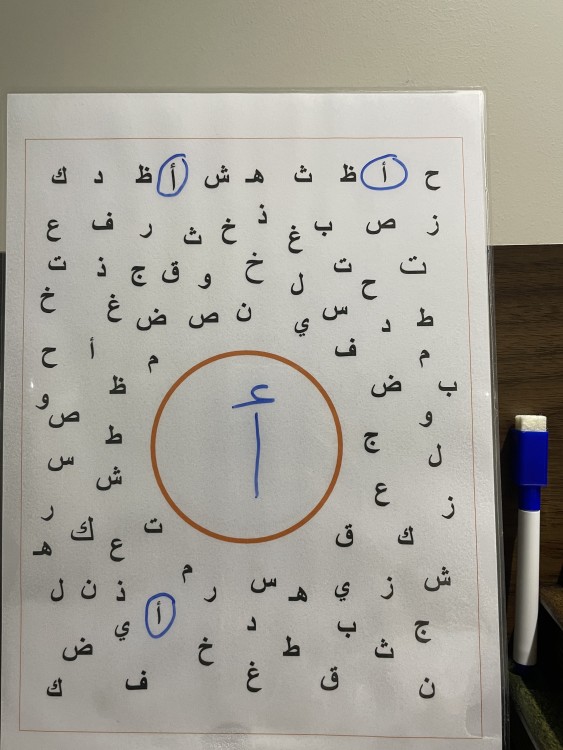 ح أ ظ ث هـ ش أ ظ د ك
ز ص ب غ ذ خ ث ر ف ع
ت ت ح ل خ و ق ج ذ ت
ط د س ي ن ص ض غ خ
م ف م أ ح
ب ض ظ و
و ج ط ص
ل ع ش س
ز ك ق ت ع ك ر هـ
أ
ش ز ي هـ س ر م ذ ن ل
ج ب د أ ي
ث ط خ ض
ن ق غ ف ك